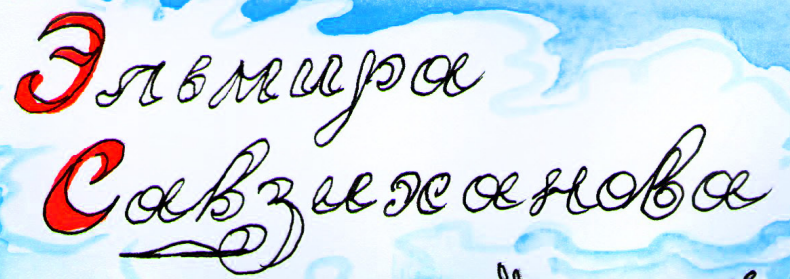 Эльмира
Савзиханова